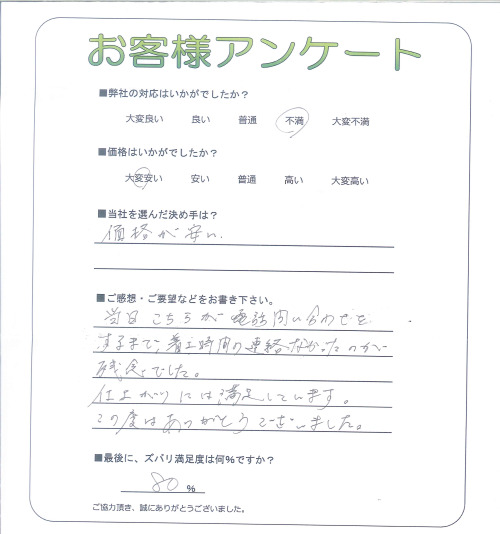 お客様アンケート
■弊社の対応はいかがでしたか?
大変良い 良い 普通 不満 大変不満
■価格はいかがでしたか?
大変安い 安い 普通 高い 大変高い
■当社を選んだ決め手は?
価格が安い
■ご感想・ご要望などをお書き下さい。
当日こちらが電話問い合わせを
するまで、着く時間の連絡がなかったのが
残念でした。
仕上がりには満足しています。
この度はありがとうございました。
■最後に、ズバリ満足度は何%ですか?
80 %
ご協力頂き、誠にありがとうございました。